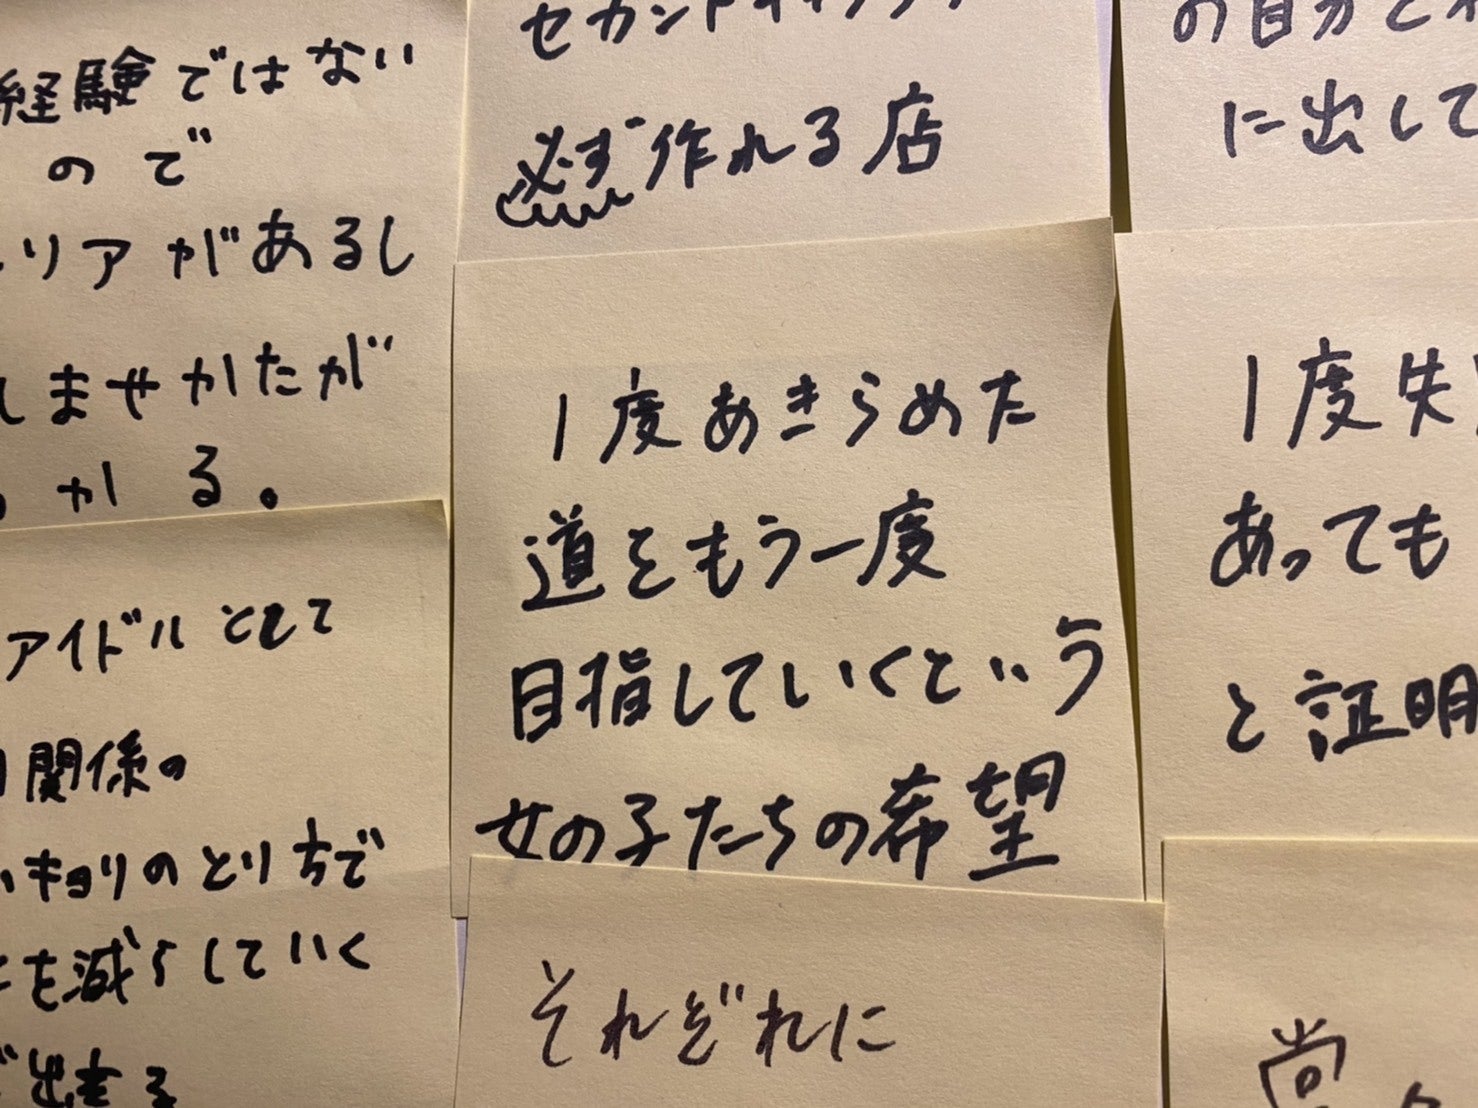 経験ではない
ので
リアがあるし
ませかたが
かる。
アイドルとして
関係の
キョリのとり方で
も減らしていく
出来る
必ず作れる店
1度あきらめた
道をもう一度
目指していくという
女の子たちの希望
それぞれに
の自分と
に出して
1度失
あっても
と証明